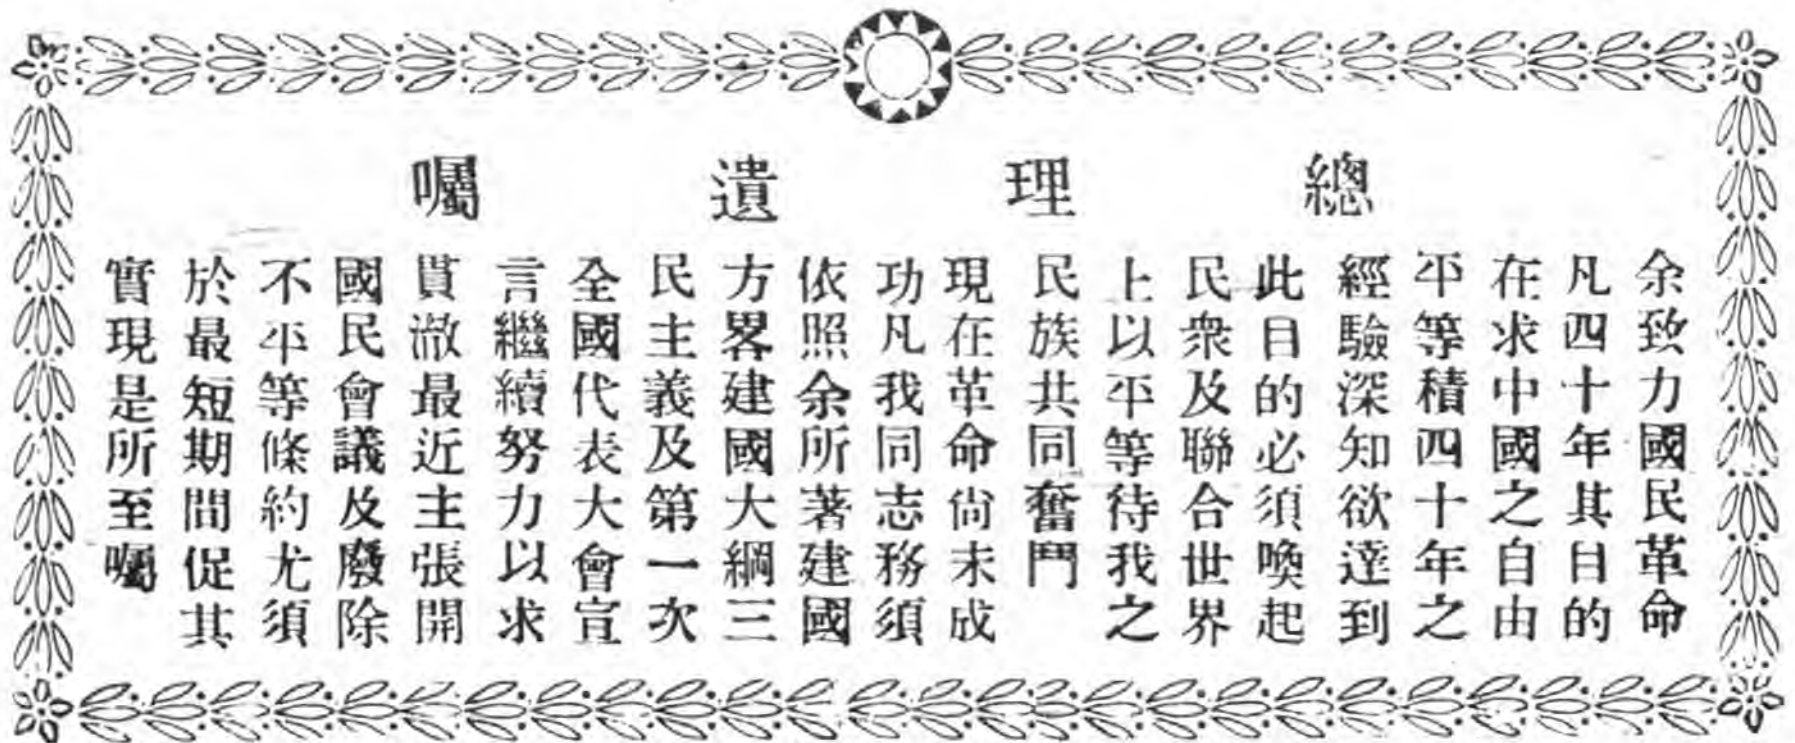 總理遺囑
余致力國民革命
凡四十年其目的
在求中國之自由
平等積四十年之
經驗深知欲達到
此目的必須喚起
民衆及聯合世界
上以平等待我之
民族共同奮鬥
現在革命尚未成
功凡我同志務須
依照余所著建國
方畧建國大綱三
民主義及第一次
全國代表大會宣
言繼續努力以求
貫澈最近主張開
國民會議及廢除
不平等條約尤須
於最短期間促其
實現是所至囑